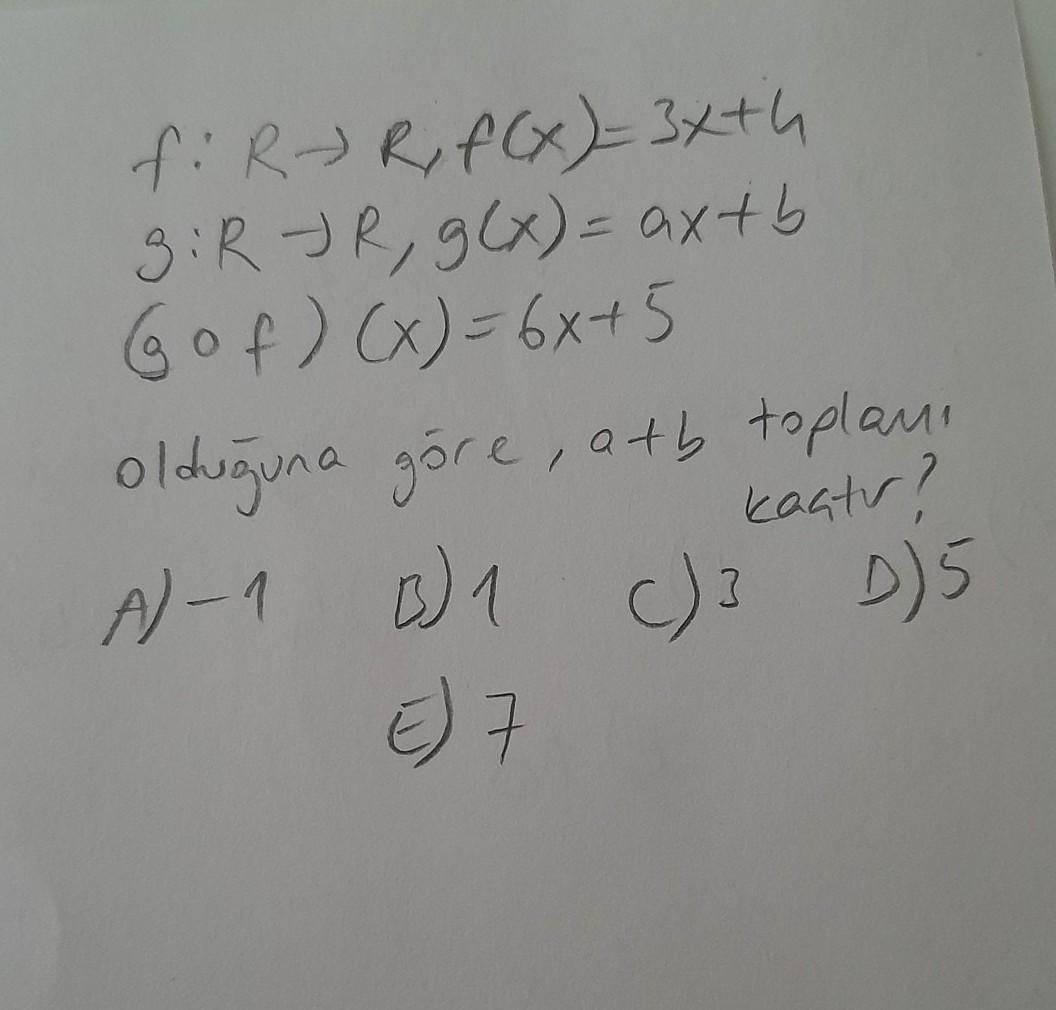 f: R→R, f(x)=3x+4
g:R→R, g(x)=ax+b
(gof)(x)=6x+5
olduğuna göre, a+b toplamı
kaçtır?
A)-1 B)1 C)3 D)5
E)7